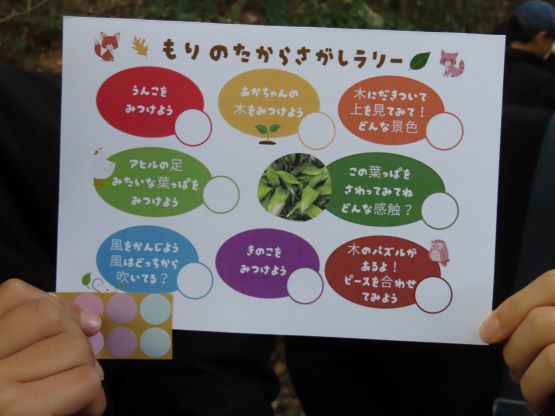 もりのたからさがしラリー
うんこを
みつけよう
あかちゃんの
木をみつけよう
木にだきついて
上を見てみて！
どんな景色
アヒルの足
みたいな葉っぱを
みつけよう
この葉っぱを
さわってみてね
どんな感触？
風をかんじよう
風はどっちから
吹いてる？
きのこを
みつけよう
木のパズルが
あるよ！
ピースを合わせ
てみよう